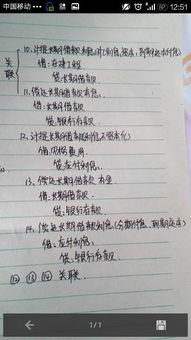 中国移动
12:51
关联
10.计提长期借款利息
借:在建工程
贷:长期借款
11.偿还长期借款本息
借:长期借款
贷:银行存款
12.计提长期借款利息
借:财务费用
贷:应付利息
13.偿还长期借款本金
借:长期借款
贷:银行存款
14.偿还长期借款利息(分期付息,到期还本)
借:应付利息
贷:银行存款
⑫ ⑬ ⑭ 关联
1/1